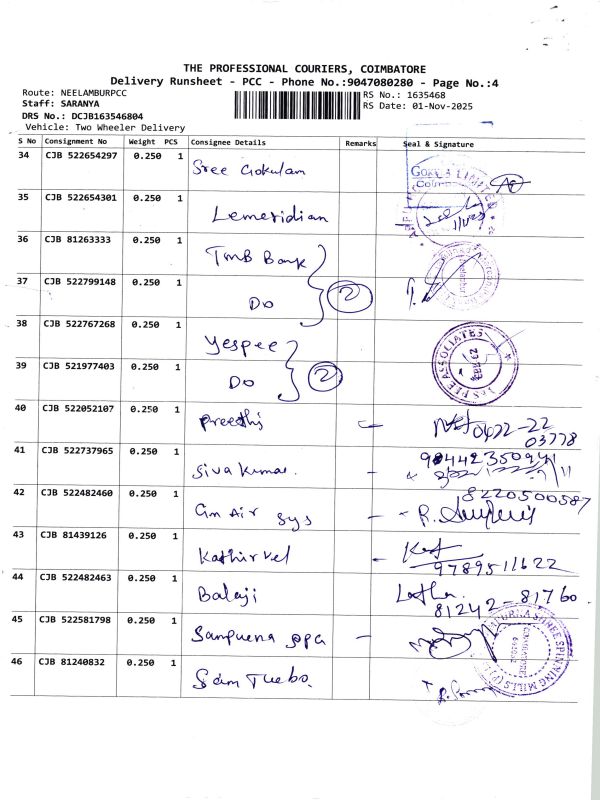 THE PROFESSIONAL COURIERS, COIMBATORE
Delivery Runsheet - PCC - Phone No.:9047080280 - Page No.:4
Route: NEELAMBURPCC
RS No.: 1635468
Staff: SARANYA
RS Date: 01-Nov-2025
DRS No.: DCJB163546804
Vehicle: Two Wheeler Delivery
S No Consignment No Weight PCS Consignee Details Remarks Seal & Signature
34 CJB 522654297 0.250 1 Sree Gokulam
35 CJB 522654301 0.250 1 Lemeridian
36 CJB 81263333 0.250 1 TMB Bank
37 CJB 522799148 0.250 1 Do 2
38 CJB 522767268 0.250 1 Yespee
YES PEE ASSOCIATES
39 CJB 521977403 0.250 1 Do 2
40 CJB 522052107 0.250 1 Preethi 0422-22
03778
41 CJB 522737965 0.250 1 Siva Kumar.
42 CJB 522482460 0.250 1 Gm Air Sys 8220500587
43 CJB 81439126 0.250 1 Kathirvel
9789511622
44 CJB 522482463 0.250 1 Balaji Latha.
81242-81760
45 CJB 522581798 0.250 1 Sampurna
SHREE SPINNING MILLS (P)
46 CJB 81240832 0.250 1 Sam Turbo.